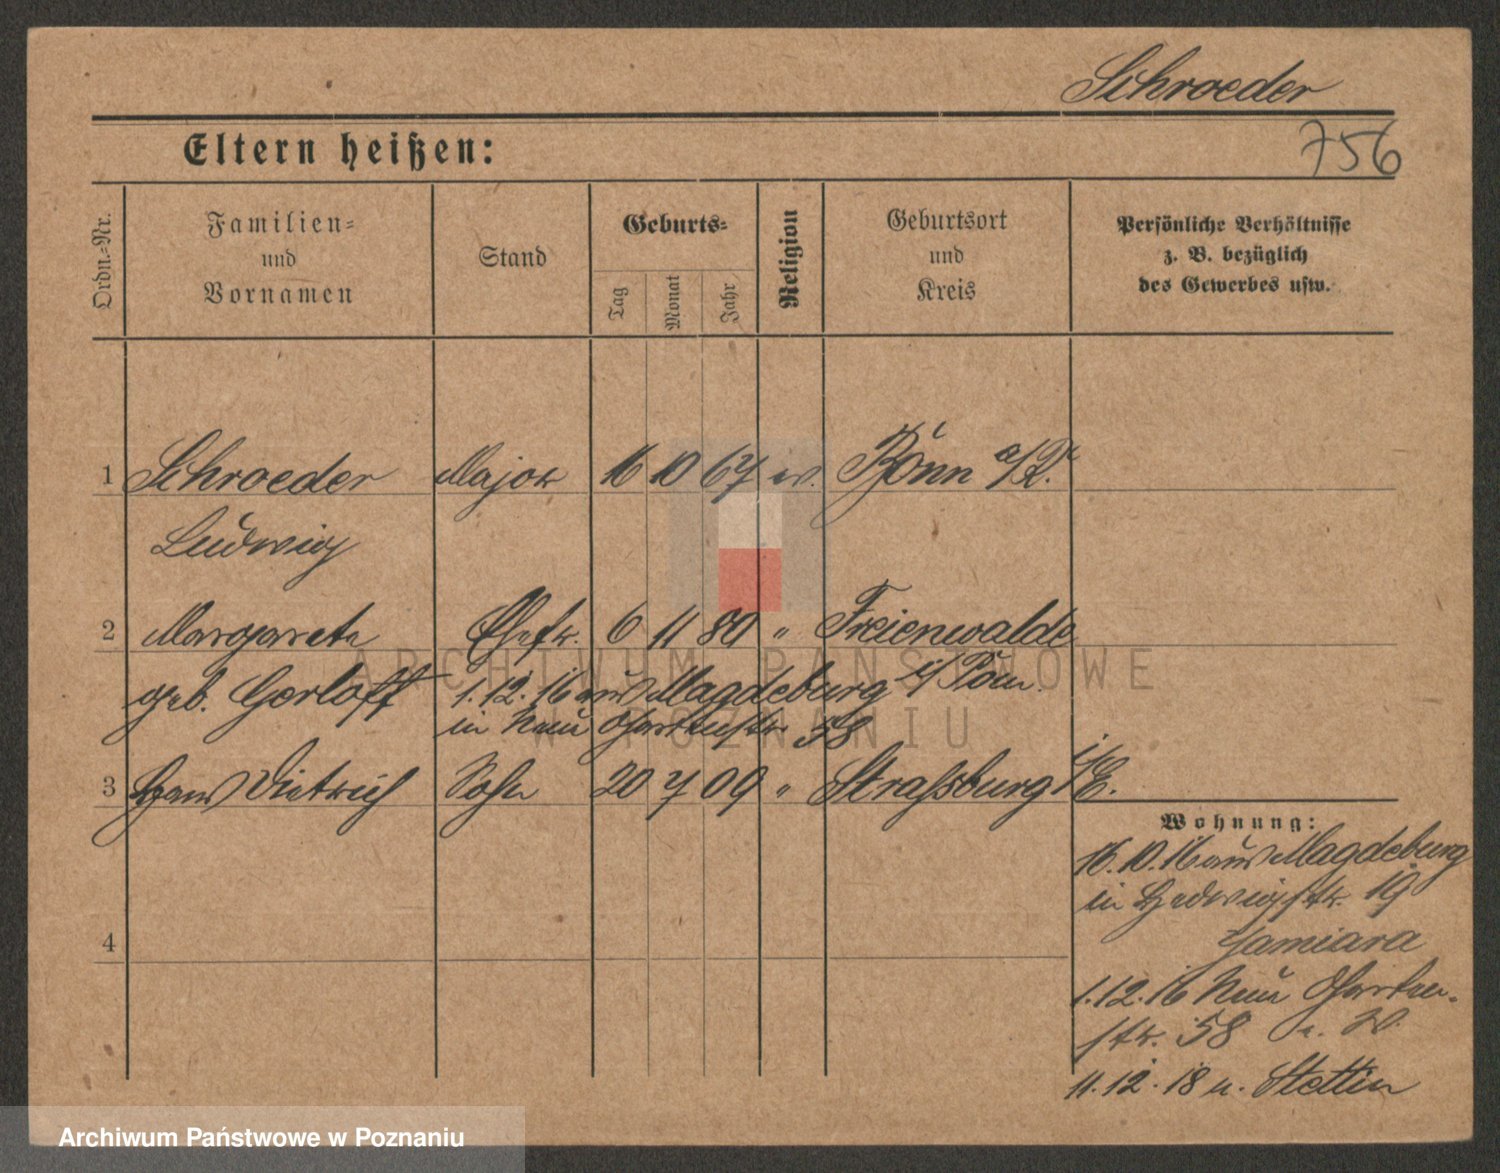 Schroeder
756
Eltern heißen:
Ordn.-Nr.
Familien-
und
Vornamen
Stand
Geburts-
Tag
Monat
Jahr
Religion
Geburtsort
und
Kreis
Persönliche Verhältnisse
z. B. bezüglich
des Gewerbes usw.
1 Schroeder Major 16 10 67 ev. Bonn a/R.
Ludwig
2 Margarete Ehefr. 6 11 80 " Freienwalde
geb. Gerloff 1.12.16 aus Magdeburg i/Pom.
in Neue Gartenstr. 58
3 Hans Dietrich Sohn 20 7 09 " Straßburg i/E.
Wohnung:
16.10.16 aus Magdeburg
in Hedwigstr. 19
4
1.12.16 Neue Garten-
str. 58
11.12.18 n. Stettin
ARCHIWUM PAŃSTWOWE
W POZNANIU
Archiwum Państwowe w Poznaniu